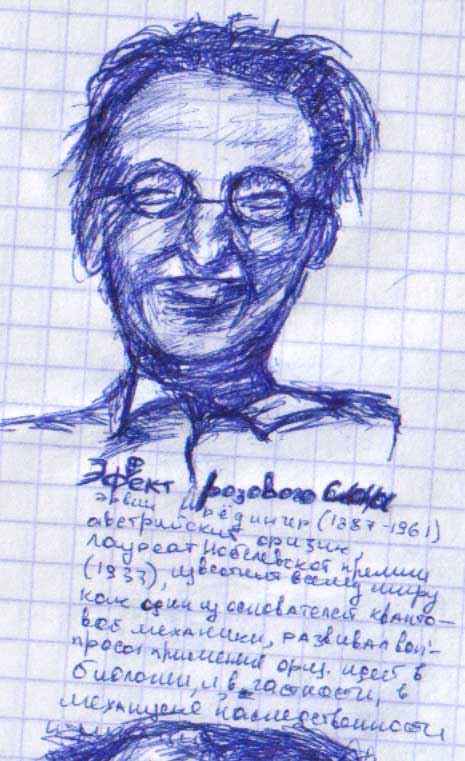 Эфект розового слона
Эрвин Шрёдингер (1887-1961)
австрийский физик,
лауреат Нобелевской премии
(1933), известный всему миру
как один из основателей кванто-
вой механики, развивал воп-
просы применения физ. идей в
биологии, и в частности, в
механизме наследственности